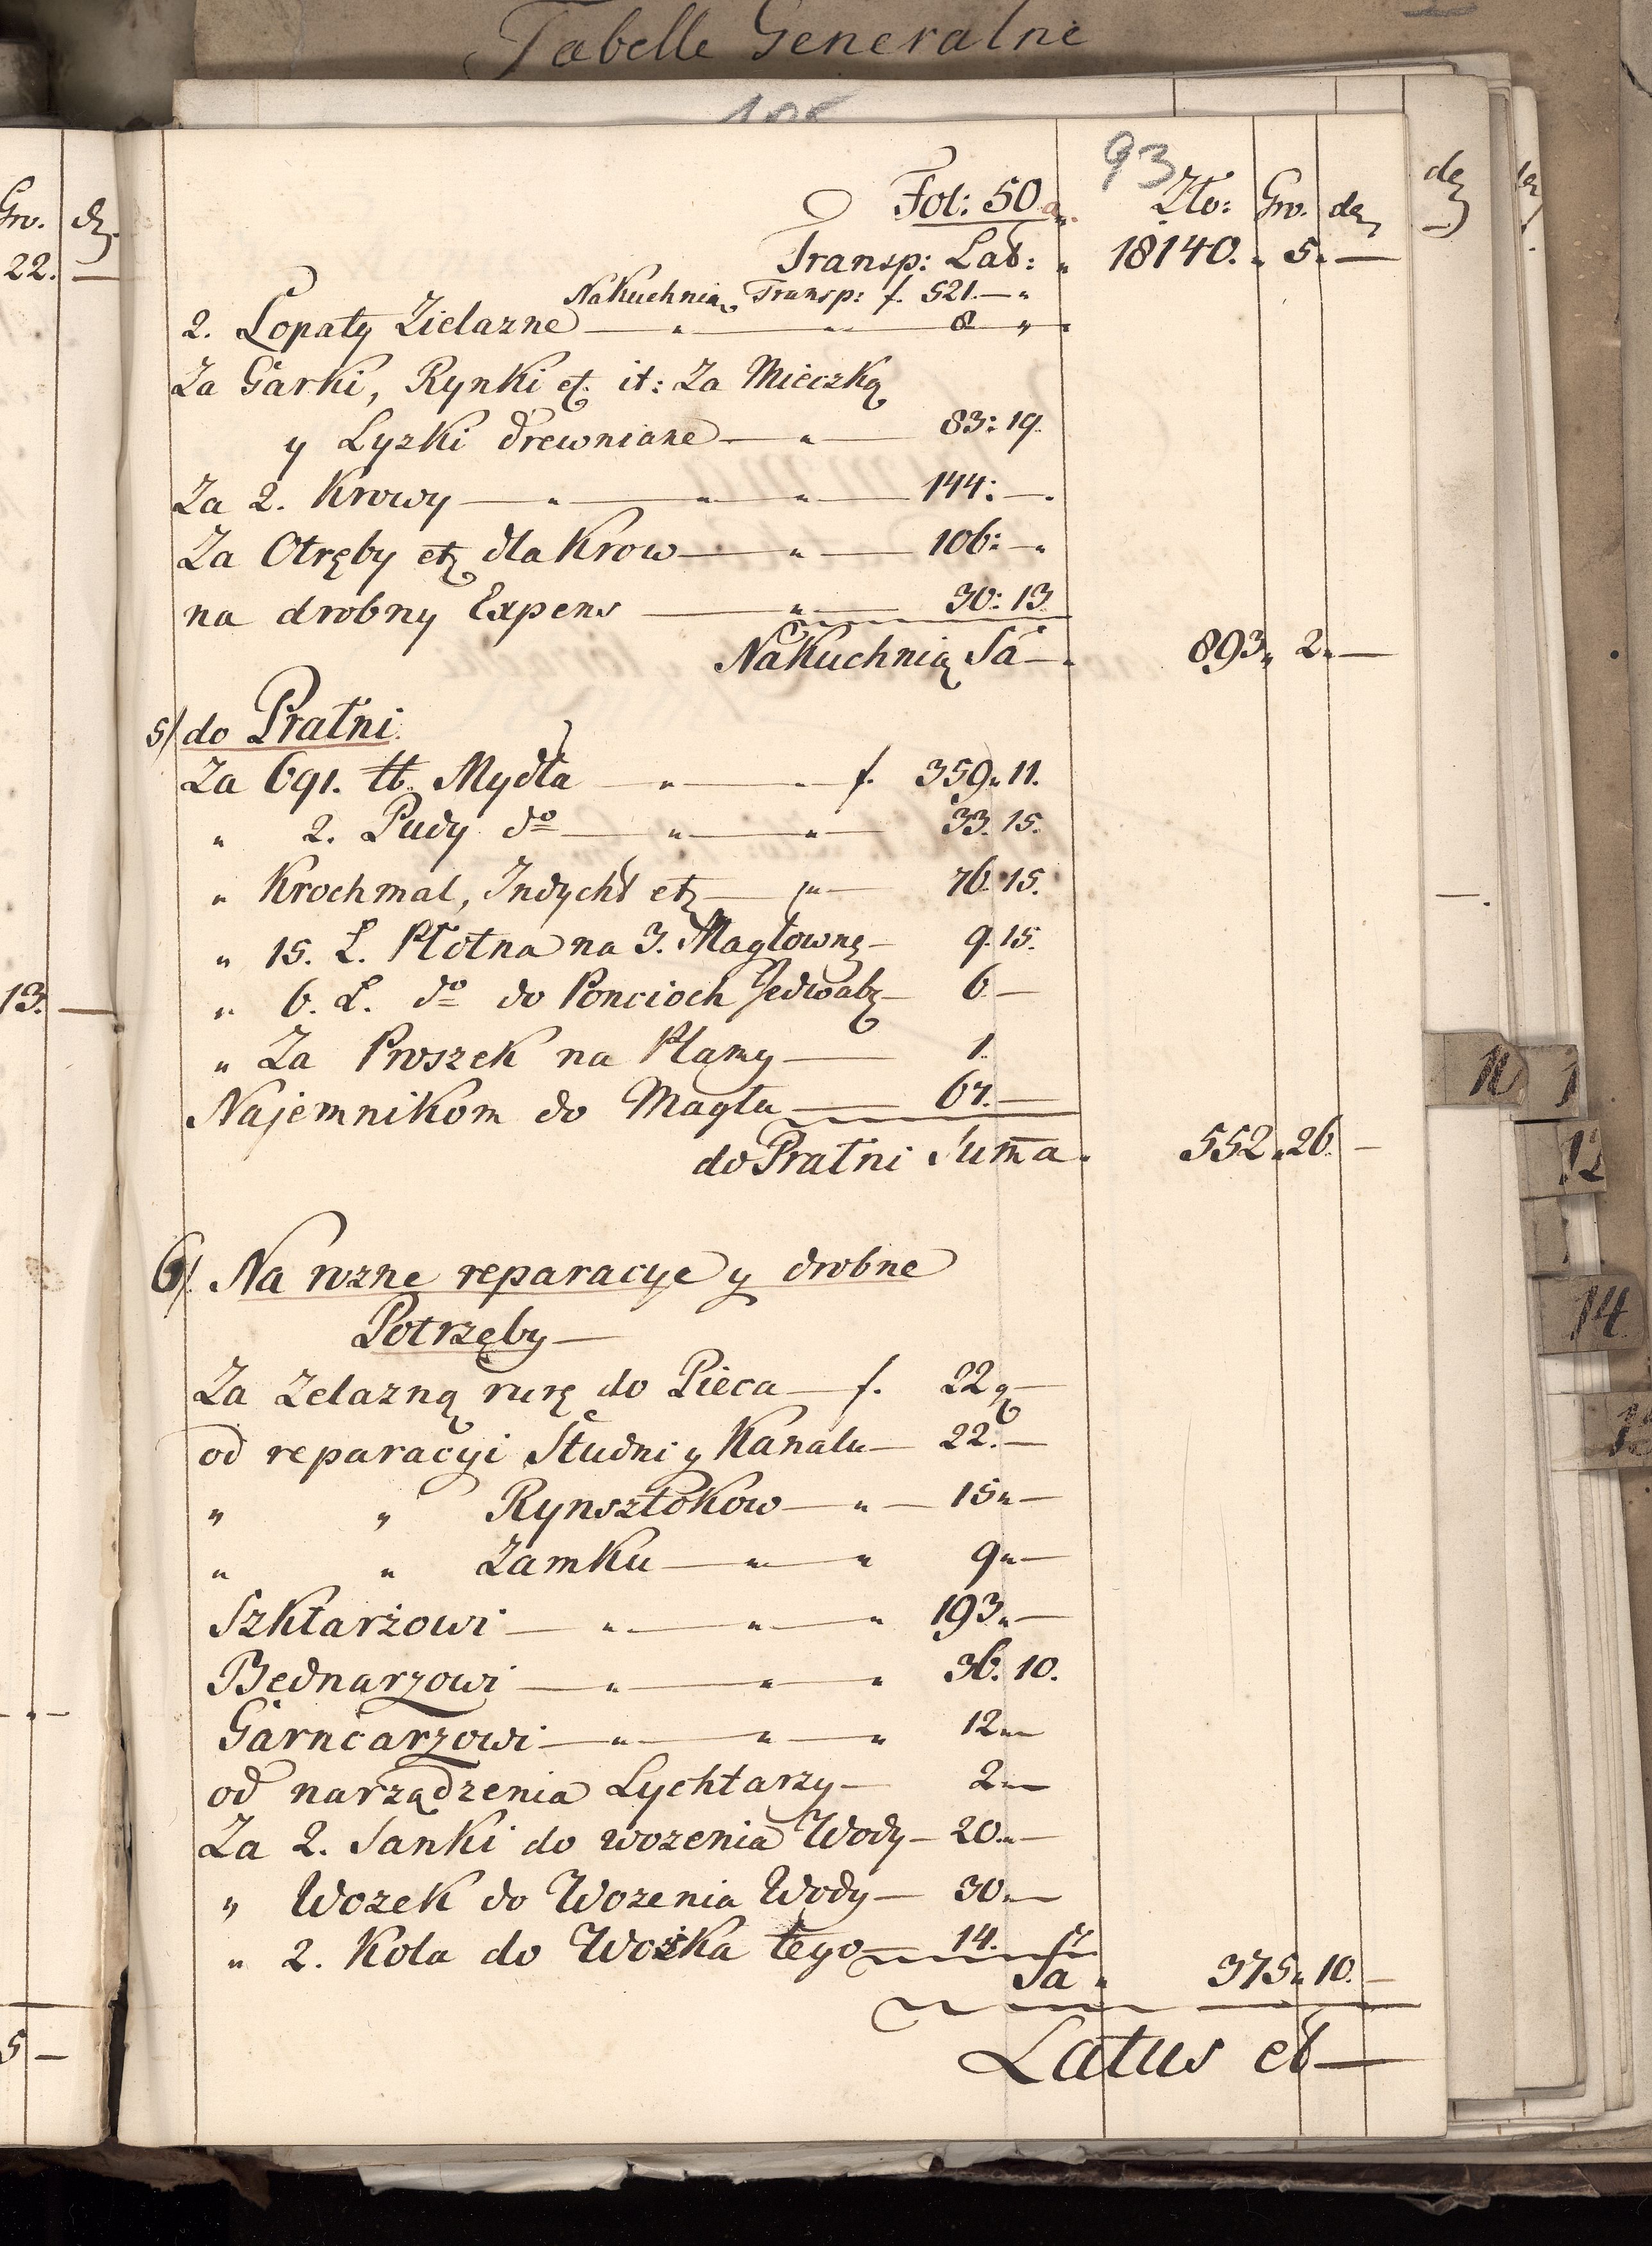 Tabelle Generalne
93
Gro. dz.
22. —
Fol: 50 a. Zło: Gro. dz
Transp: Lat: 18140. 5. —
Na Kuchnią Transp: f. 521. — "
2. Łopaty Zielazne — " — " — 8 — "
Za Garki, Rynki etc it: Za Mieczką
y Lyzki drewniane — " — 83: 19.
Za 2. Krowy — " — " — " — 144: — .
Za Otręby etc dla Krow — " — 106: — "
na drobny Expens — " — 30: 13
Na Kuchnią Sa — . 893 " 2 " —
5/ do Pralni.
Za 691. ℔. Mydła — " — " f. 359 " 11.
" 2. Pudy do — " — " — 33. 15.
" Krochmal, Indycht etc — " — 76. 15.
" 15. Ł. Płótna na 3. Maglownę — 9. 15.
" 6. Ł. do do Poncioch Jedwabz — 6 —
" Za Proszek na Plamy — 1.
13. —
Najemnikom do Maglu — 67. —
do Pralni Suma . 552 " 26. —
6/. Na rozne reparacye y drobne
Potrzęby —
Za Zelazną rurę do Pieca — f. 22 g —
od reparacyi Studni y Kanalu — 22. —
" " Rynsztokow — " — 15 " —
" " Zamku — " — " 9 " —
Szklarzowi — " — " — " 193 " —
Bednarzowi — " — " — " 36. 10.
Garncarzowi — " — " — " 12 " —
od narządzenia Lychtarzy — 2 " —
Za 2. Sanki do wozenia Wody — 20 " —
" Wozek do Wozenia Wody — 30 " —
" 2. Kola do Wozka tego — 14.
Sa " 375 " 10. —
5 —
Latus et —
dz
11
12
14